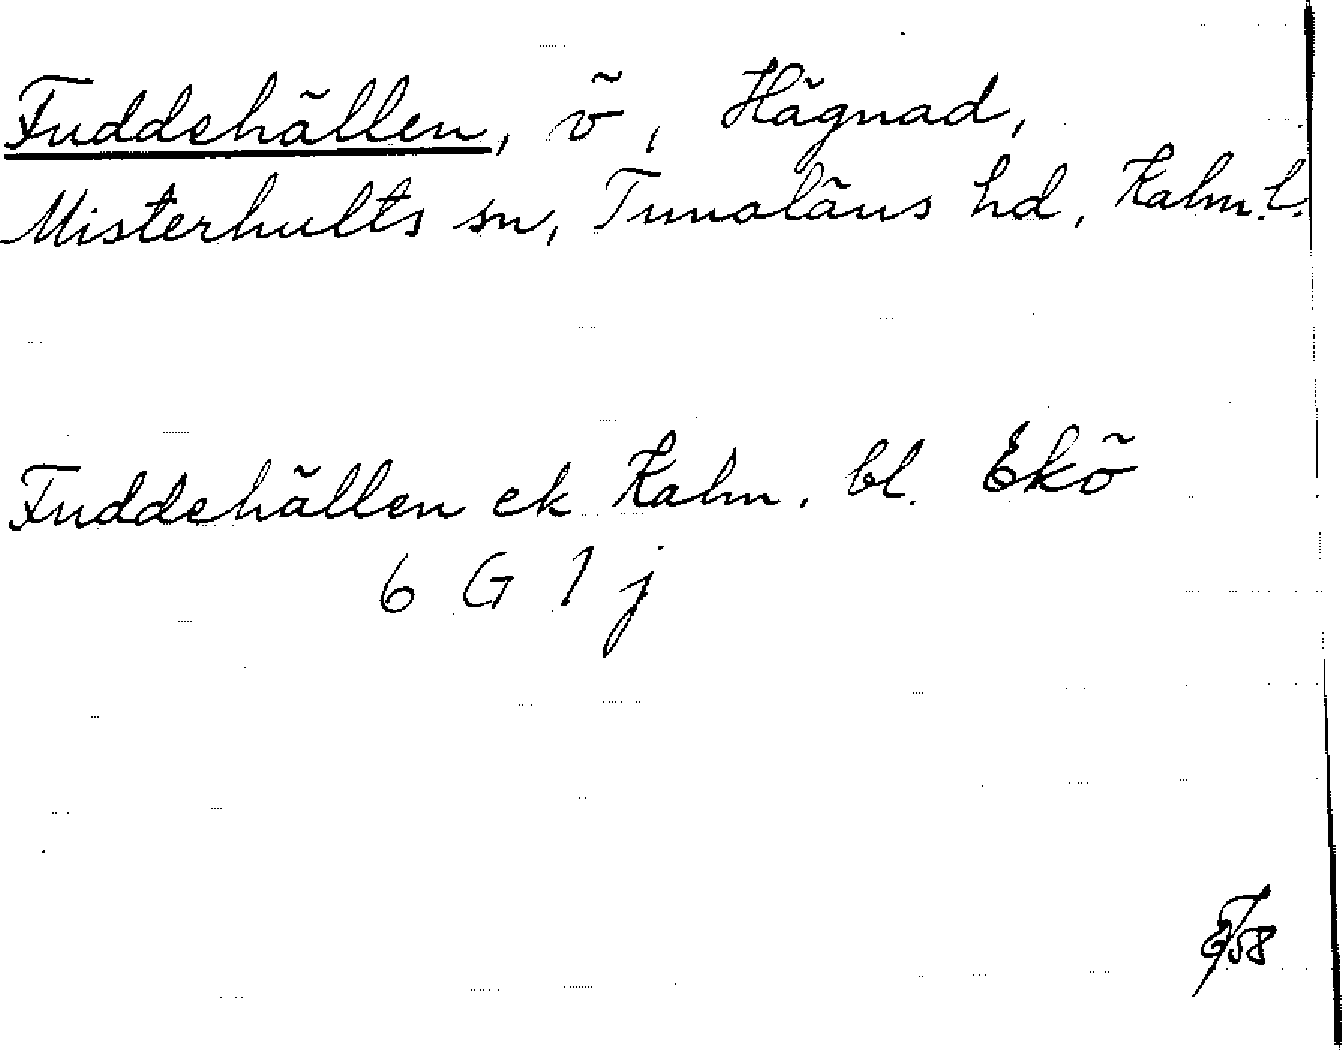 Fuddehällen, ö, Hägnad,
Misterhults sn, Tunaläns hd, Kalm. l.
Fuddehällen ek Kalm. bl. Ekö
6 G 1 j